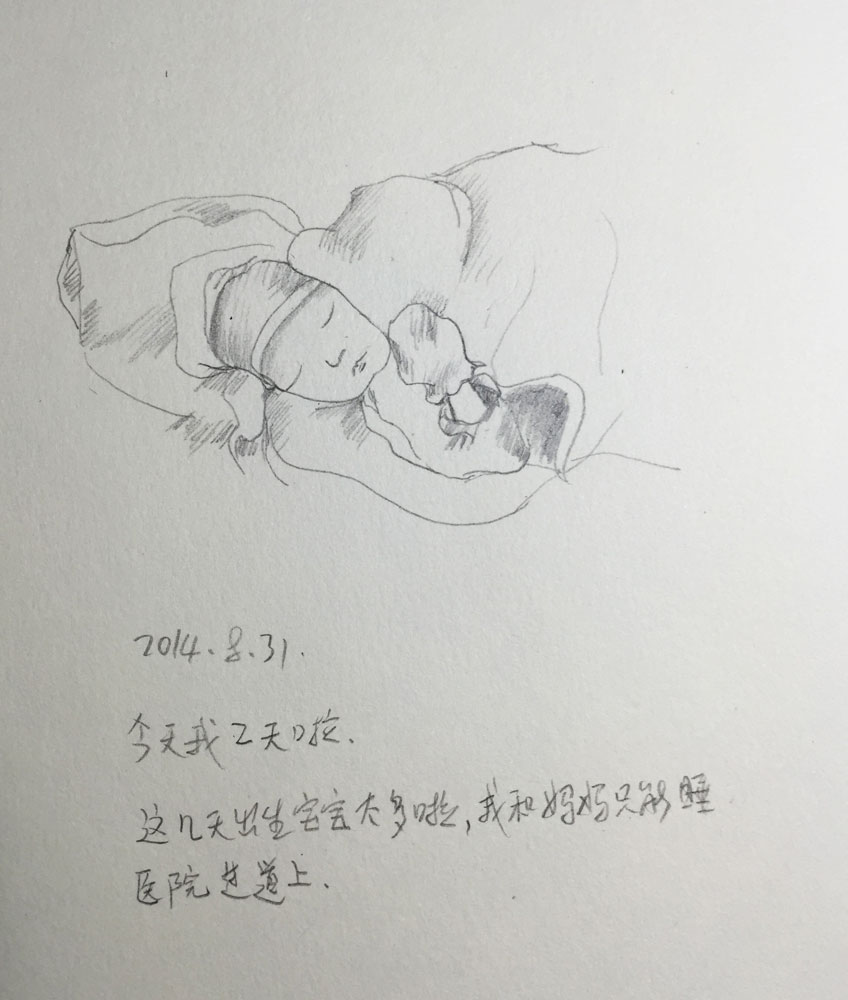 2014.8.31.
今天我2天啦.
这几天出生宝宝太多啦,我和妈妈只能睡
医院走道上.